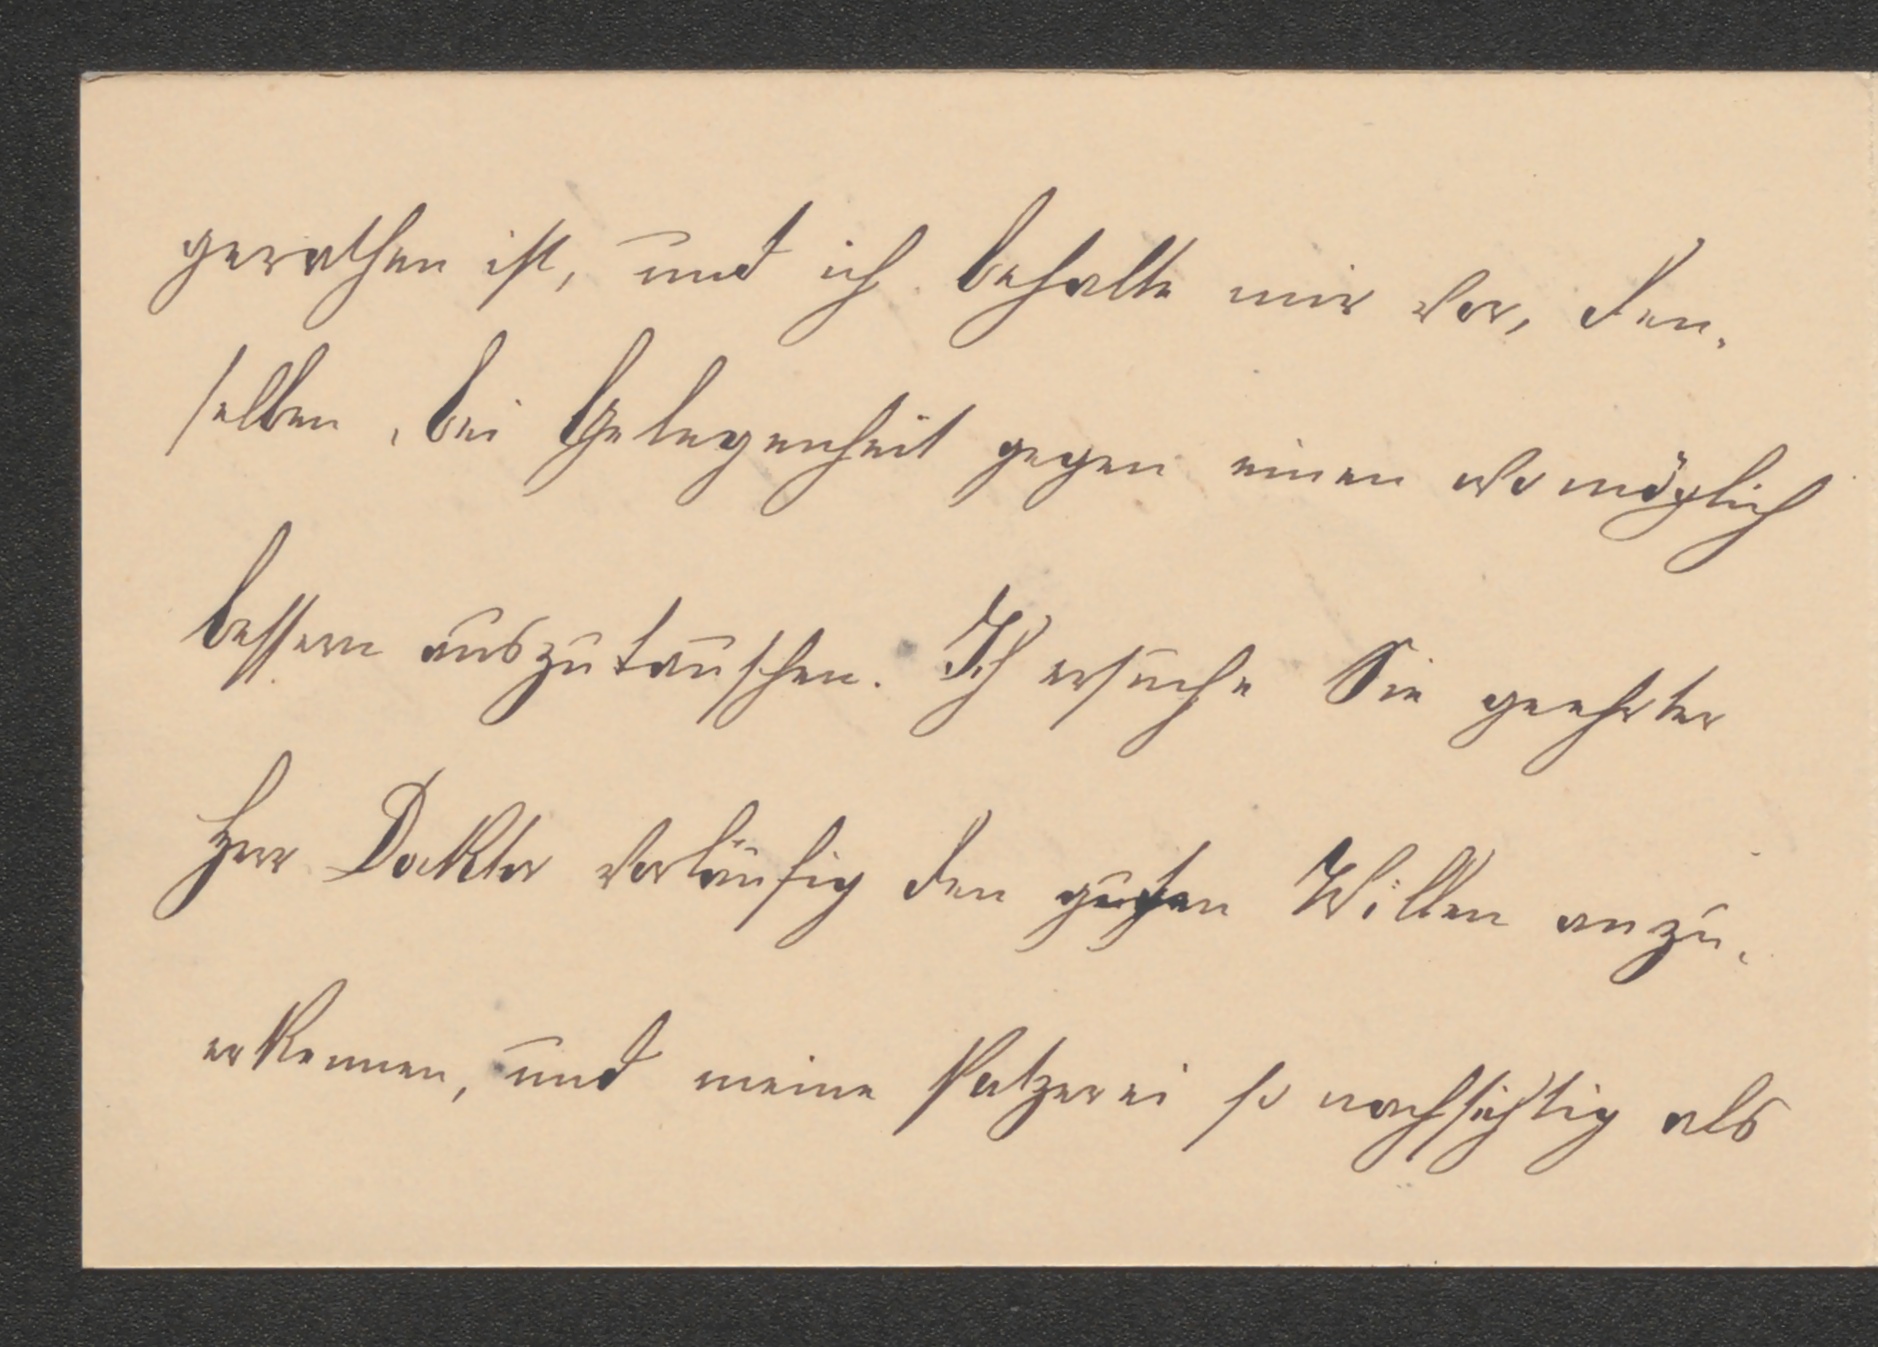 gerathen ist, und ich behalte mir vor, den-
selben, bei Gelegenheit gegen einen womöglich
bessern auszutauschen. Ich ersuche Sie geehrter
Herr Doktor vorläufig den guten Willen anzu-
erkennen, und meine Patzerei so nachsichtig als